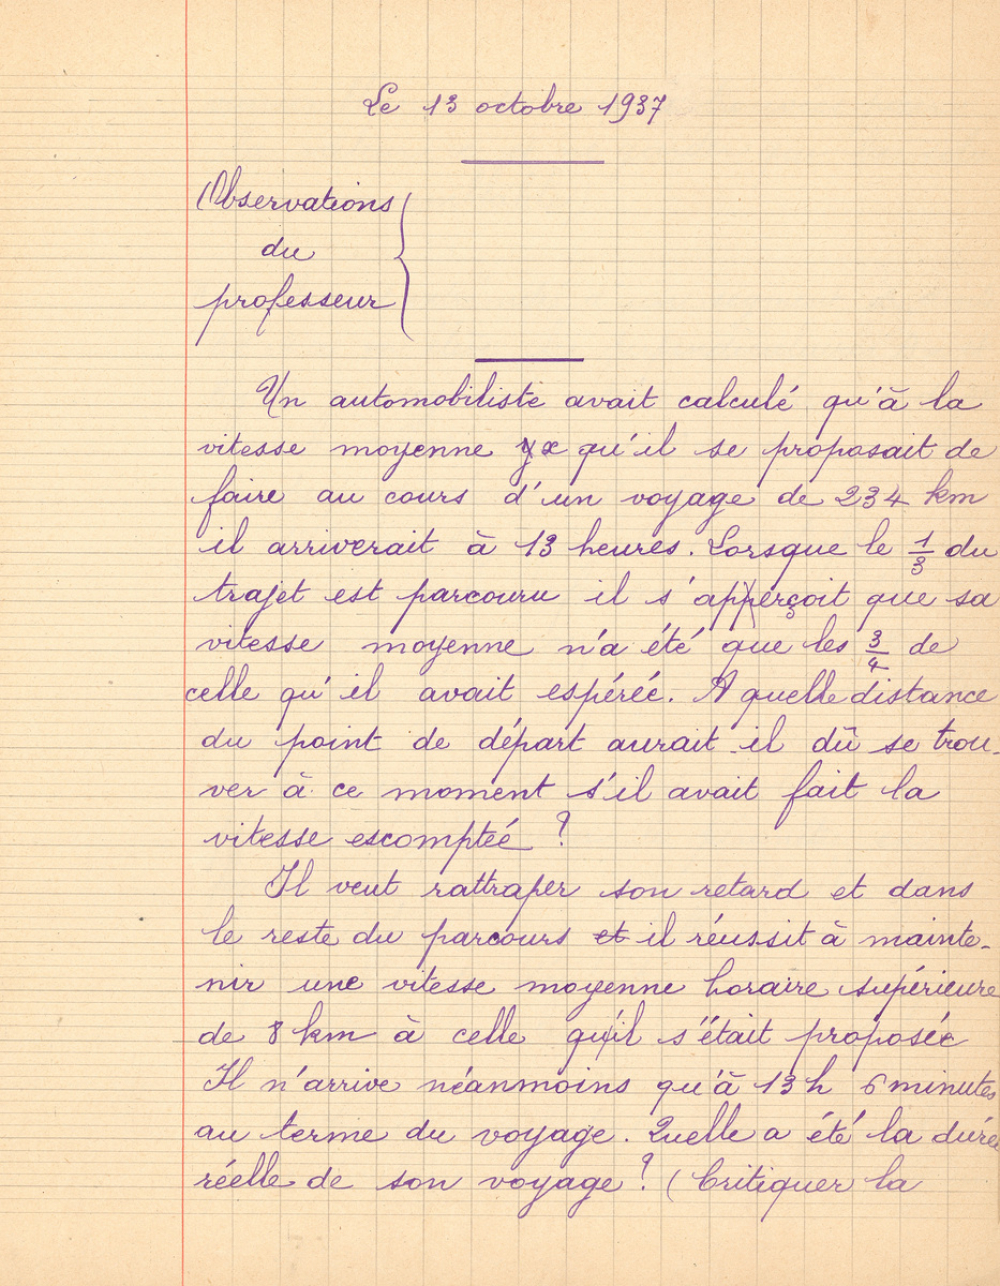 Le 13 octobre 1937
Observations
du
professeur
Un automobiliste avait calculé qu'à la
vitesse moyenne qu'il se proposait de
faire au cours d'un voyage de 234 km
il arriverait à 13 heures. Lorsque le 1/3 du
trajet est parcouru il s'apperçoit que sa
vitesse moyenne n'a été que les 3/4 de
celle qu'il avait espérée. A quelle distance
du point de départ aurait-il dû se trou-
ver à ce moment s'il avait fait la
vitesse escomptée ?
Il veut rattraper son retard et dans
le reste du parcours et il réussit à mainte-
nir une vitesse moyenne horaire supérieure
de 8 km à celle qu'il s'était proposée
Il n'arrive néanmoins qu'à 13h 6 minutes
au terme du voyage. Quelle a été la durée
réelle de son voyage ? (Critiquer la